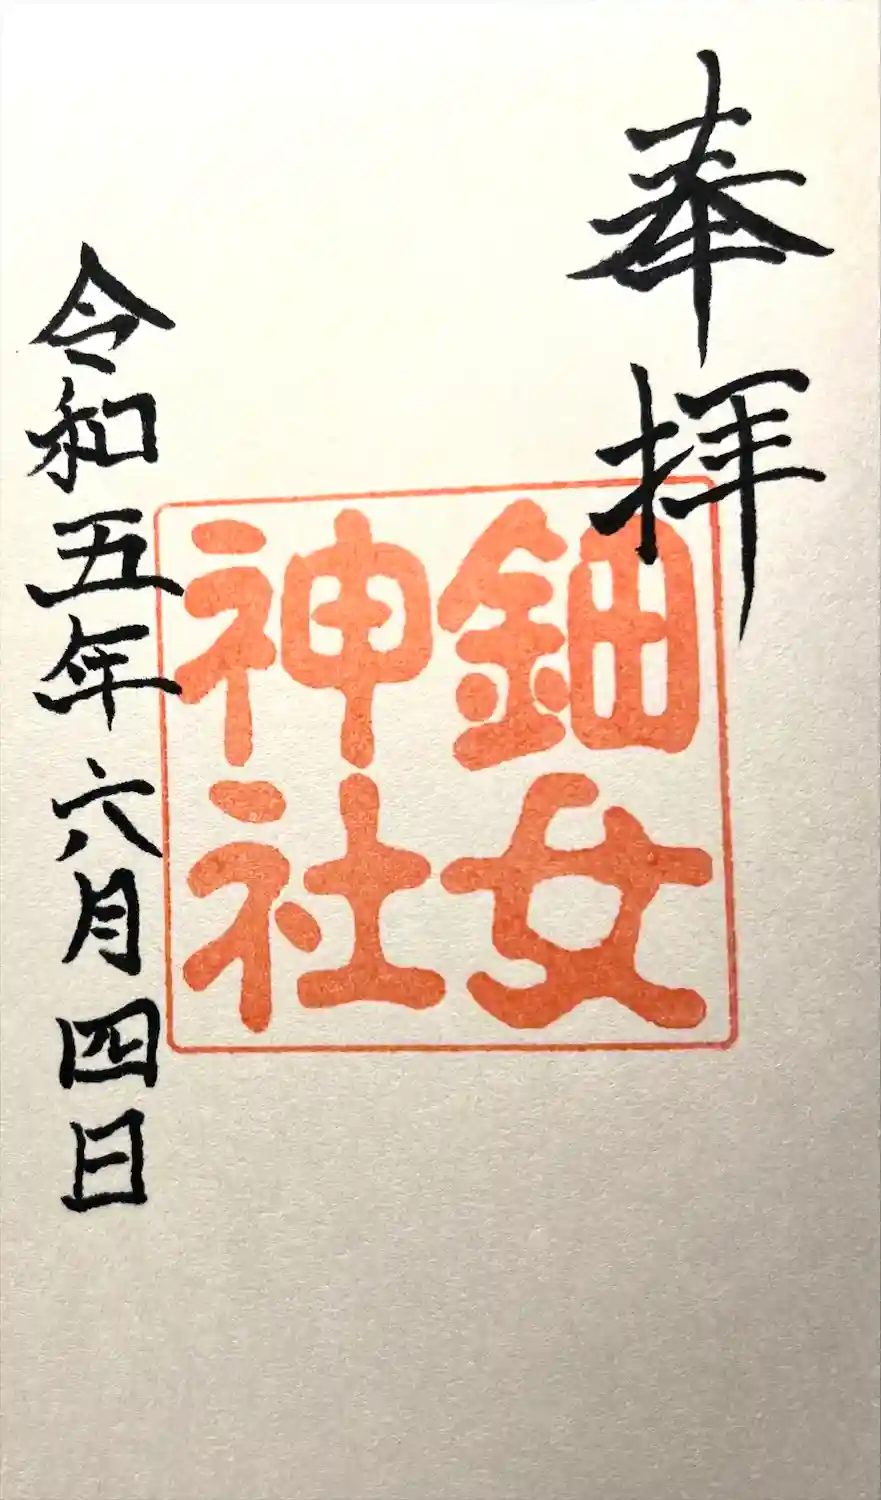 奉拝
鈿女
神社
令和五年六月四日